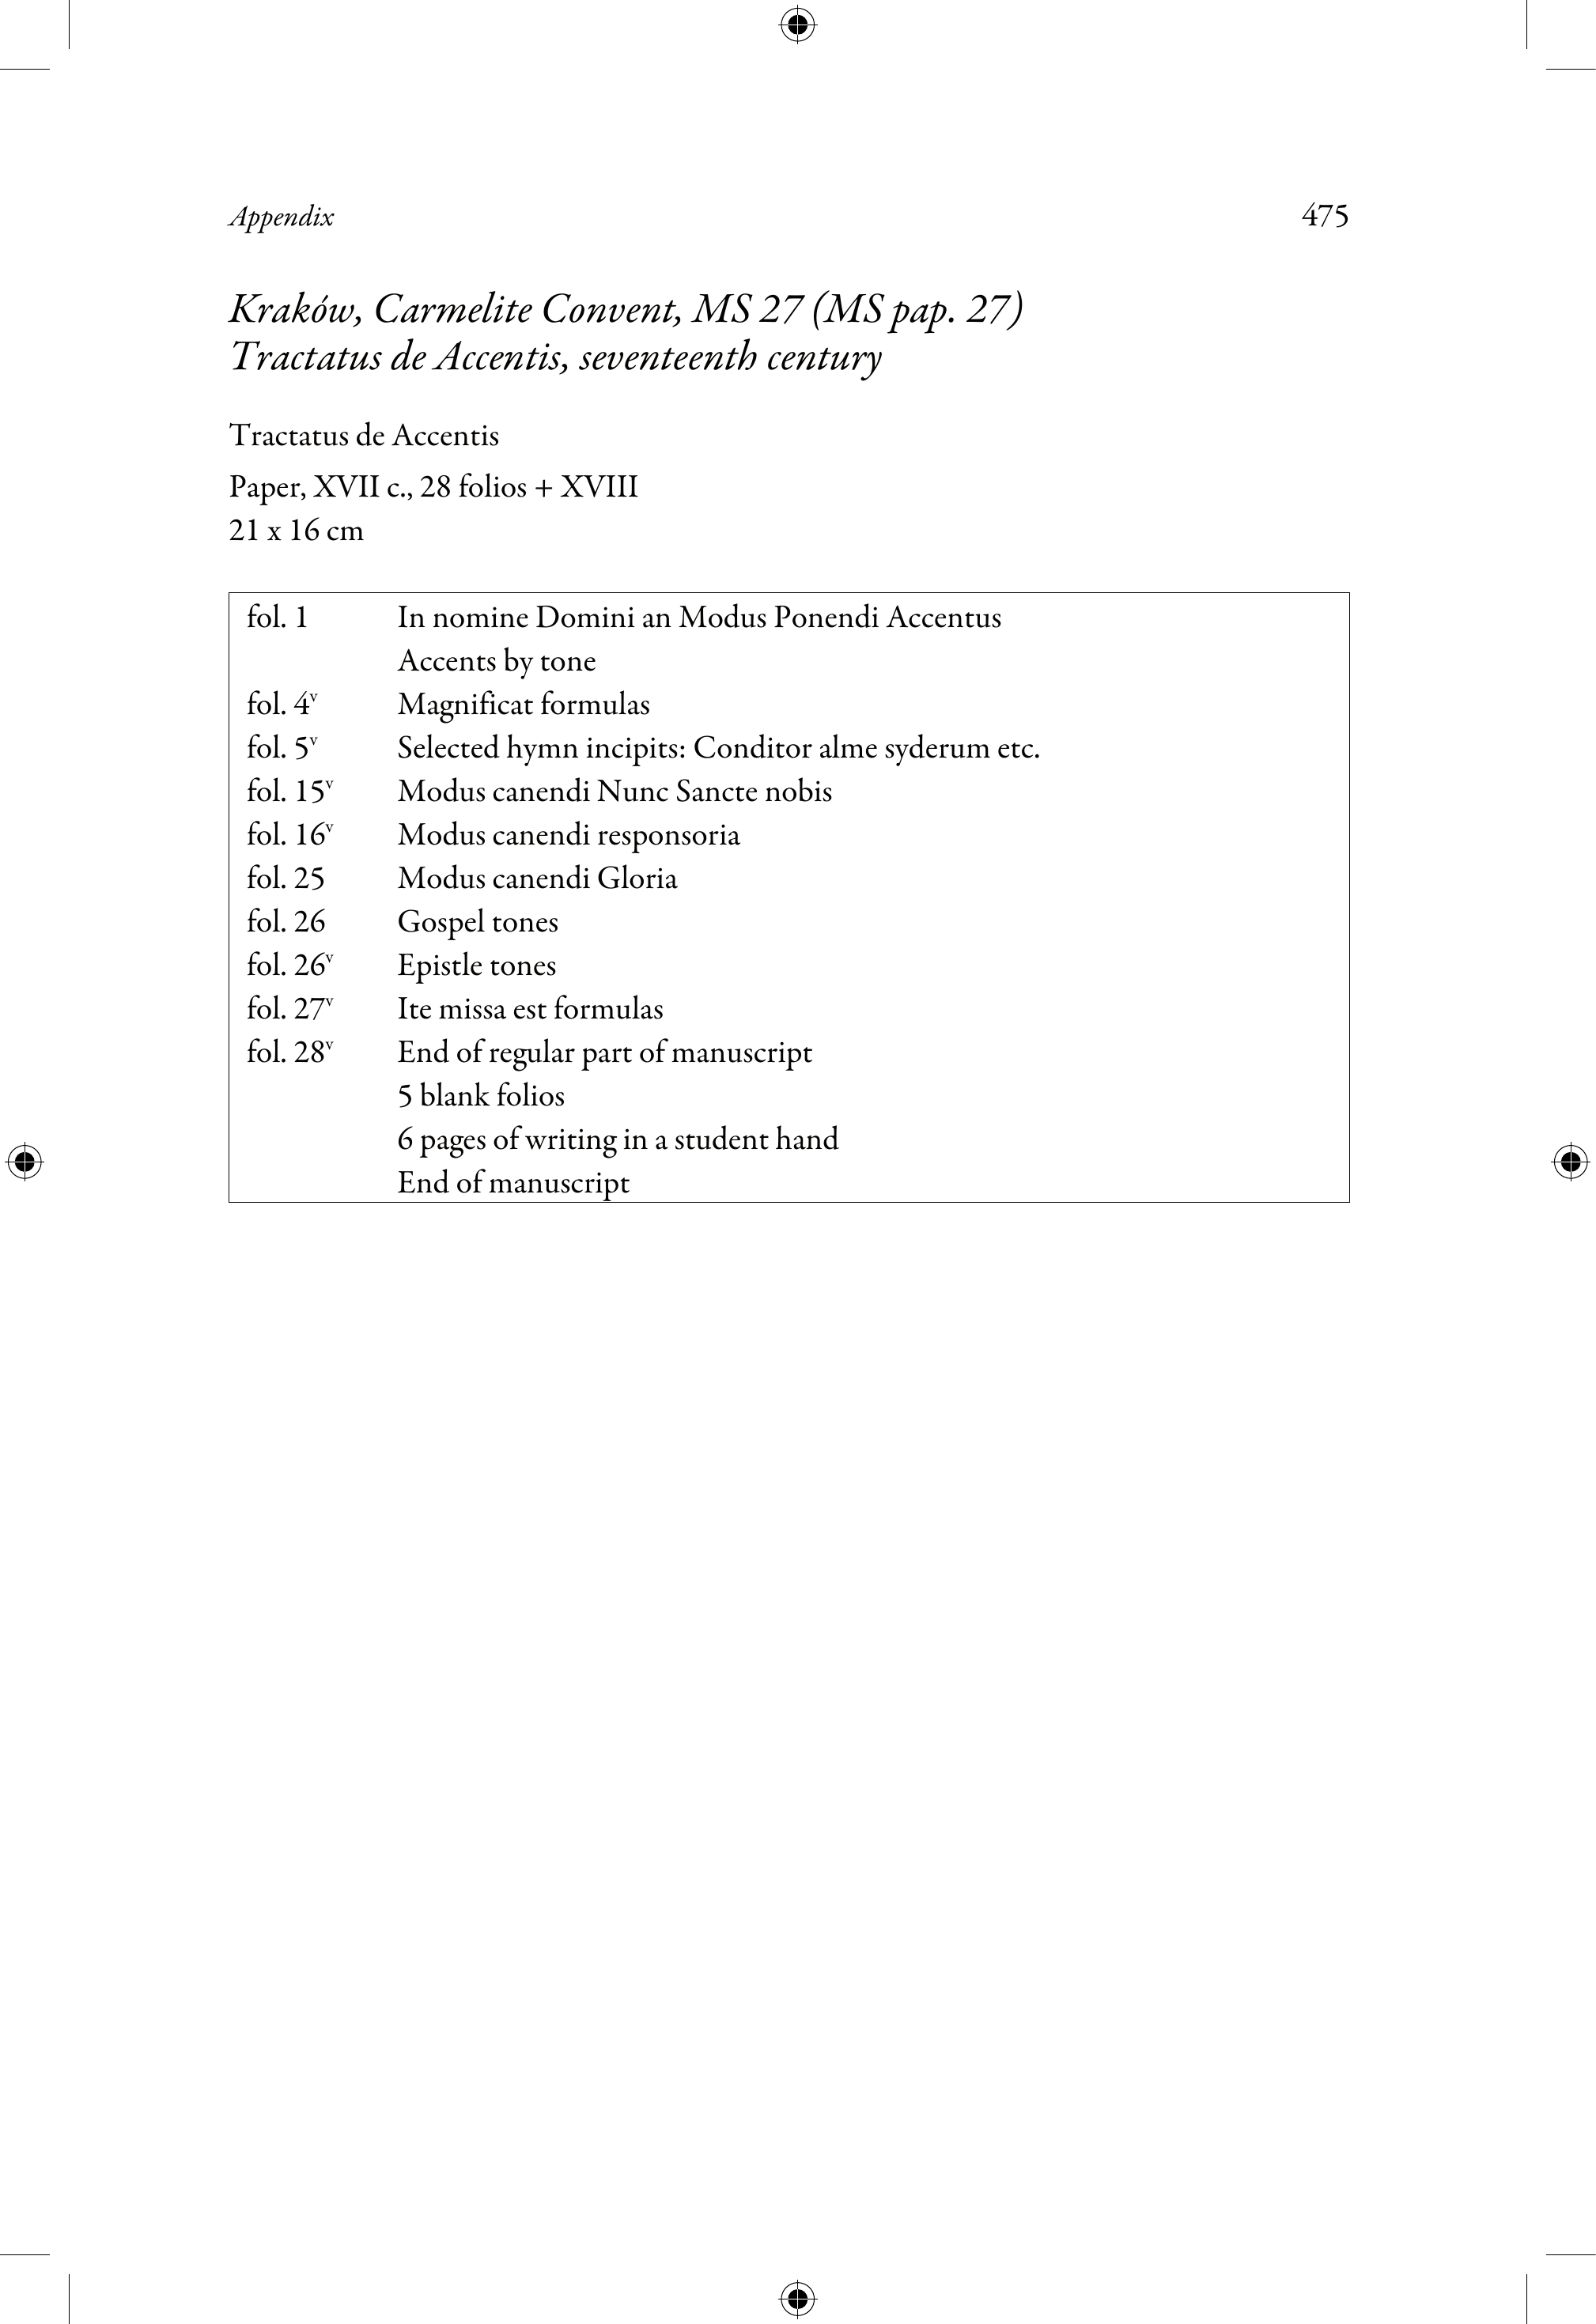 Appendix 475
Kraków, Carmelite Convent, MS 27 (MS pap. 27)
Tractatus de Accentis, seventeenth century
Tractatus de Accentis
Paper, XVII c., 28 folios + XVIII
21 x 16 cm
fol. 1 In nomine Domini an Modus Ponendi Accentus
Accents by tone
fol. 4v Magnificat formulas
fol. 5v Selected hymn incipits: Conditor alme syderum etc.
fol. 15v Modus canendi Nunc Sancte nobis
fol. 16v Modus canendi responsoria
fol. 25 Modus canendi Gloria
fol. 26 Gospel tones
fol. 26v Epistle tones
fol. 27v Ite missa est formulas
fol. 28v End of regular part of manuscript
5 blank folios
6 pages of writing in a student hand
End of manuscript